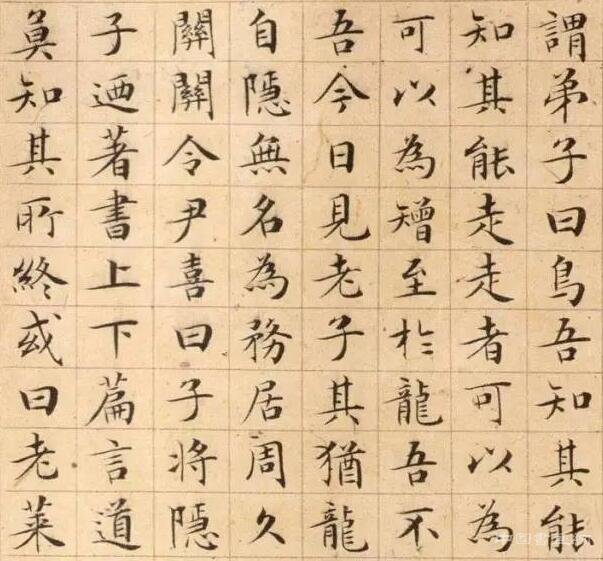 謂弟子曰鳥吾知其能
知其能走走者可以為
可以為矰至於龍吾不
吾今日見老子其猶龍
自隱無名為務居周久
關關令尹喜曰子將隱
子迺著書上下篇言道
莫知其所終或曰老萊